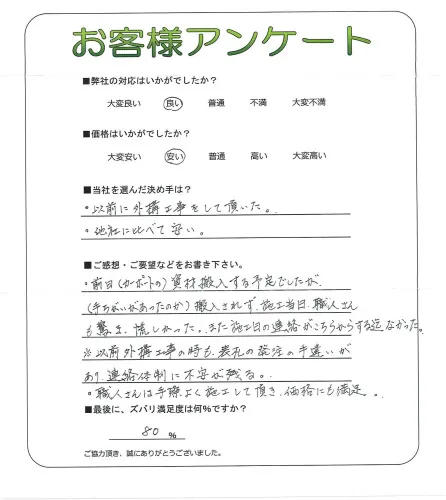 お客様アンケート
■弊社の対応はいかがでしたか?
大変良い 良い 普通 不満 大変不満
■価格はいかがでしたか?
大変安い 安い 普通 高い 大変高い
■当社を選んだ決め手は?
・以前に外構工事をして頂いた。
・他社に比べて安い。
■ご感想・ご要望などをお書き下さい。
・前日(カーポートの)資材搬入する予定でしたが、
(手ちがいがあったのか)搬入されず、施工当日、職人さん
も驚き、慌しかった。また施工日の連絡がこちらからする迄なかった。
※以前外構工事の時も、表札の発注の手違いが
あり、連絡体制に不安が残る。
・職人さんは手際よく施工して頂き、価格にも満足。
■最後に、ズバリ満足度は何%ですか?
80 %
ご協力頂き、誠にありがとうございました。